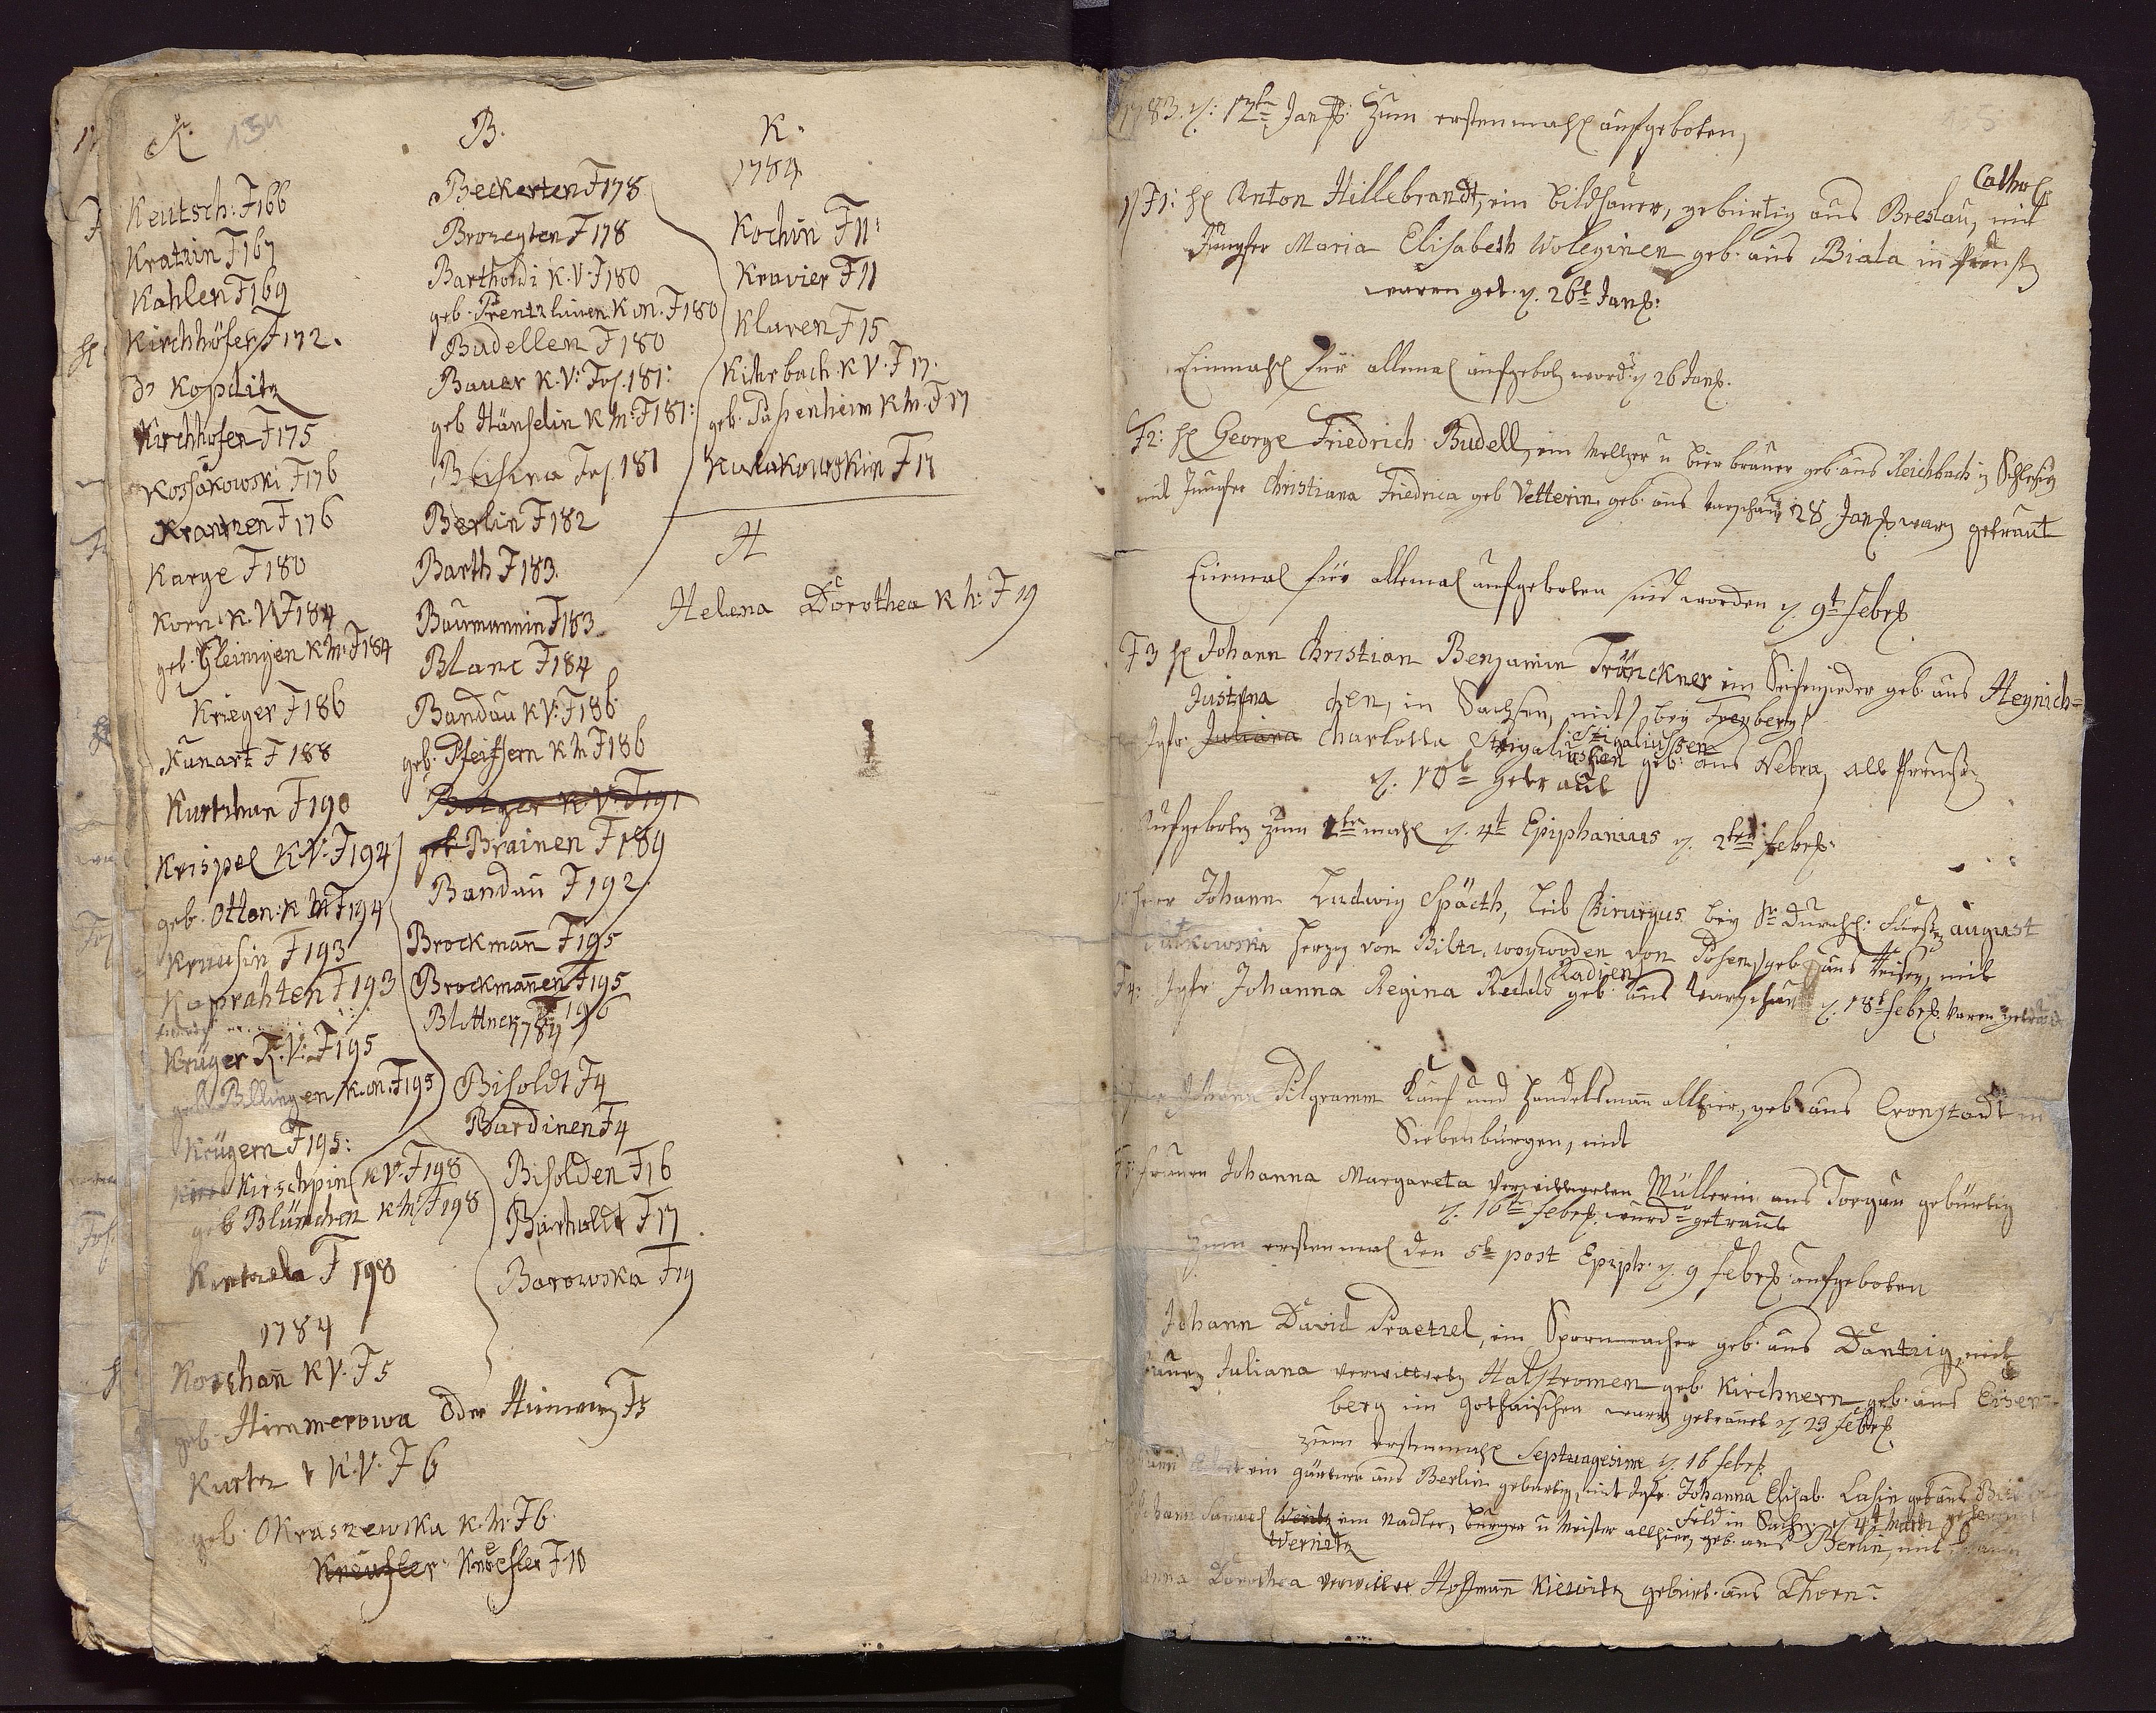 K. 134
Keutsch: F166
Kratzin F167
Kahlen F169
Kirchhöfer F172.
Kopplitz
Kirchhofen F175
Kossakowski F176
Krantzen F176
Karge F180
Korn K.V. F184
geb. Gleinigen K.M. F184
Krieger F186
Kunart F188
Kurtzhun F190
Krispel K.V. F194
geb. Otton K M F194
Krausin F193
Koprahten F193
Krüger K.V. F195
geb. Billingen K.M. F195
Krügern F195:
Kirschpin K.V. F198
geb Blümchen K M F198
Krutzela F 198
1784
Koschañ K V. F5
geb. Himmerowa Oder F5
Kurtz K.V. F6
geb. Okraszewska K.M. F6.
Kneusler Knoesler F10
B.
Beckerten F178
Brozeyten F178
Bartholdi K.V. F180
geb. Prentzlauen K.M. F180
Budellen F180
Bauer K.V: Fol. 181:
geb Hänselin K M: F181:
Fol. 181
Berlin F182
Barth F183.
Baumannin F183
Blanc F184
Bandau K V: F186.
geb. Pfeiffern K M F186
Botzer K V. F191
geb Brainen F189
Bandau F192.
Brockmañ F195
Brockmañen F195
Blottner F196
1784
Bisoldt F4
Bardinen F4
Bisolden F16
Barholdt F17
Barowska F19
K.
1784
Kochin F11:
Kravier F11
Klaren F15
Kihrbach K V. F17.
geb. Pasenheim K M. F17
Kurakowskin F17
H
Helena Dorothea K h. F19
1783. d. 12te Jan: Zum erstenmahl aufgeboten,
Cathol
F1: H Anton Hillebrandt, ein Bildhauer, gebürtig aus Breslau, mit
Jungfer Maria Elisabeth Woleginen geb. aus Biala in Preuss
waren get. d. 26t Jan:
Einmahl für allemal aufgebotn word. d 26 Jan.
F2: H George Friedrich Budell, ein Meltzer u Bierbrauer geb. aus Reichbach in Schlesig
mit Jungfer Christiana Friedrica geb Vetterin. geb. aus Warschau 28 Jan. warn getraut
Einmal für allemal aufgeboten sind worden d. 9t Febr
F3 H Johann Christian Benjamin Tränckner ein Seifensieder geb. aus Heynich=
chen, in Sachsen, mit bey Freyberg
Justina
Jgfr. Juliana Charlotta geb: aus Nebra, all
d. 10t getraut
Aufgebotn zum 1ten mahl d. 4t Epiphanius d. 2ten Febr.
Herr Johann Ludwig Späth, Leib Chirurgus bey Sr Durchl: Fürstn August
Sulkowski Herzog von Biltz, woywoden von Posen, geb. aus Reisen, mit
Radien
F4: Jgfr Johanna Regina geb. aus Warschau d. 18t Febr. waren getraut
Johann Pilgramm Kauf und Handelsmann allhier, geb aus Cronstadt in
Siebenbürgen, mit
Frauen Johanna Margareta Verwittweten Müllerin aus Torgau gebürtig
d. 16ten Febr. wurdn getraut
Zum erstenmal den 5te post Epiph. d. 9 Febr. aufgeboten
Johann David Praetzel, ein Spormacher geb. aus Dantzig, mit
Juliana verwittwetn Halstromen geb. Kirchnern geb. aus Eisen=
berg im Gothaischen warn getraut d 23 Febr
zum erstenmahl Septuagesim d. 16 Febr.
ein Gärtner aus Berlin gebürtig, mit Jgfr. Johanna Elisab. Lasin geb aus
Feld in Sachsen d 4t Martz
Johann Samuel Weritz ein Nadler, Bürger u Meister allhier, geb. aus Berlin, mit
Wernitz
Anna Dorothea Verwittwe Hoffmañ Kiewitz gebürt. aus Thorn.